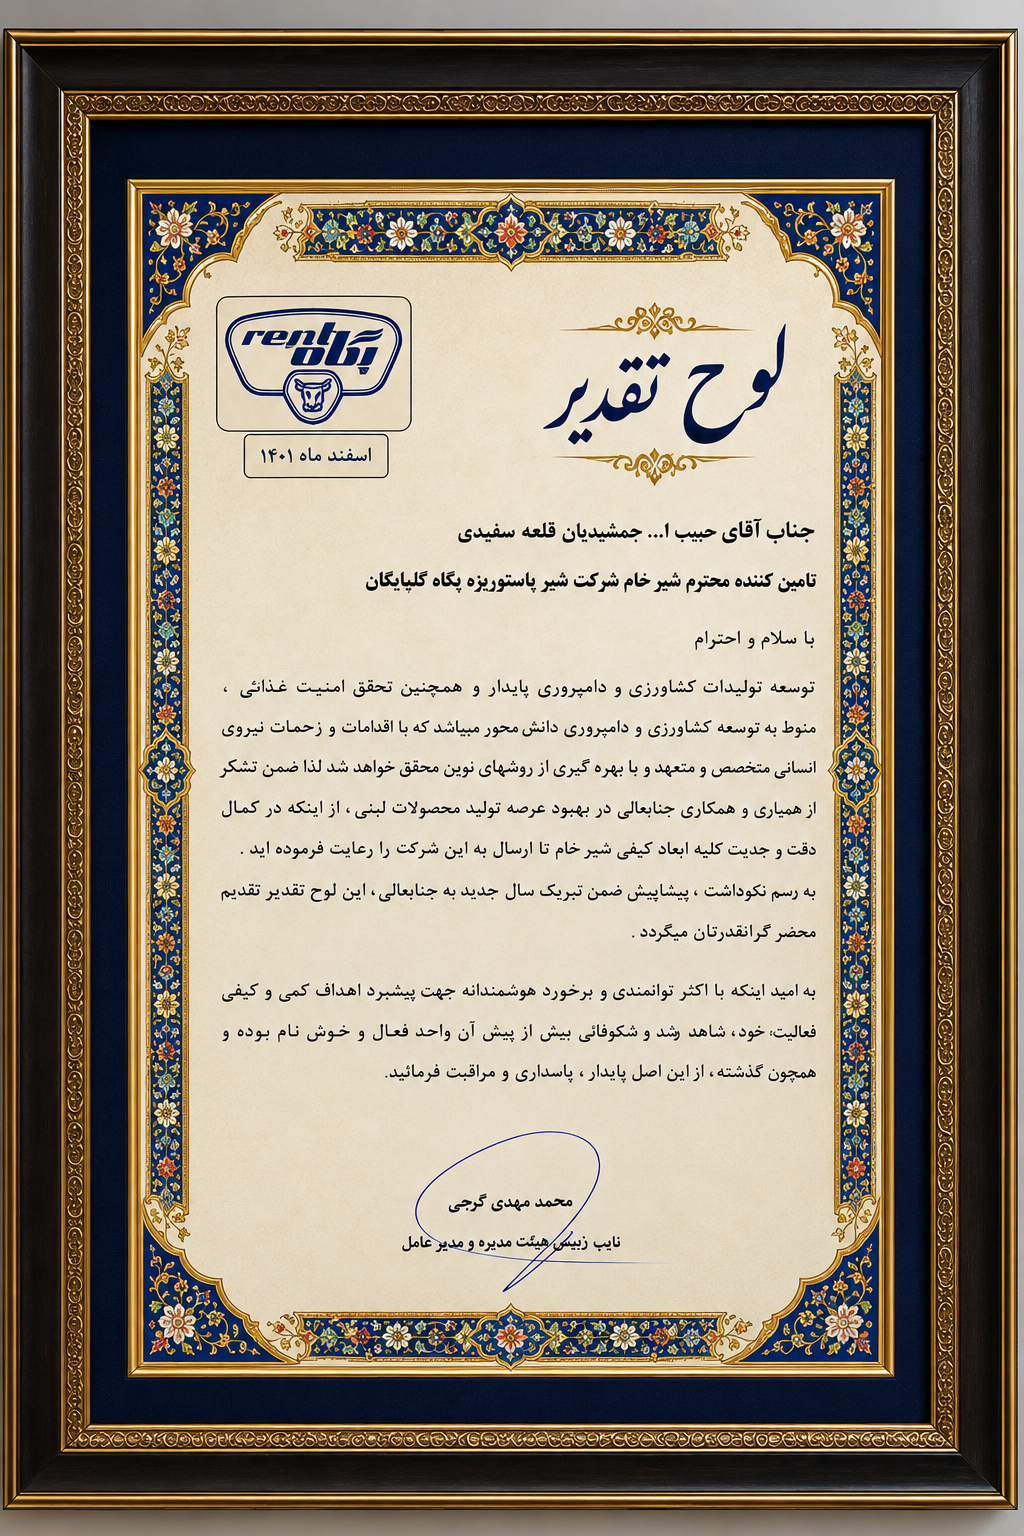 rent
پگاه
اسفند ماه ۱۴۰۱
لوح تقدیر
جناب آقای حبیب ا... جمشیدیان قلعه سفیدی
تامین کننده محترم شیر خام شرکت شیر پاستوریزه پگاه گلپایگان
با سلام و احترام
توسعه تولیدات کشاورزی و دامپروری پایدار و همچنین تحقق امنیت غذائی ،
منوط به توسعه کشاورزی و دامپروری دانش محور میباشد که با اقدامات و زحمات نیروی
انسانی متخصص و متعهد و با بهره گیری از روشهای نوین محقق خواهد شد لذا ضمن تشکر
از همیاری و همکاری جنابعالی در بهبود عرصه تولید محصولات لبنی ، از اینکه در کمال
دقت و جدیت کلیه ابعاد کیفی شیر خام تا ارسال به این شرکت را رعایت فرموده اید .
به رسم نکوداشت ، پیشاپیش ضمن تبریک سال جدید به جنابعالی ، این لوح تقدیر تقدیم
محضر گرانقدرتان میگردد .
به امید اینکه با اکثر توانمندی و برخورد هوشمندانه جهت پیشبرد اهداف کمی و کیفی
فعالیت خود، شاهد رشد و شکوفائی بیش از پیش آن واحد فعال و خوش نام بوده و
همچون گذشته ، از این اصل پایدار ، پاسداری و مراقبت فرمائید.
محمد مهدی گرجی
نایب هیئت مدیره و مدیر عامل